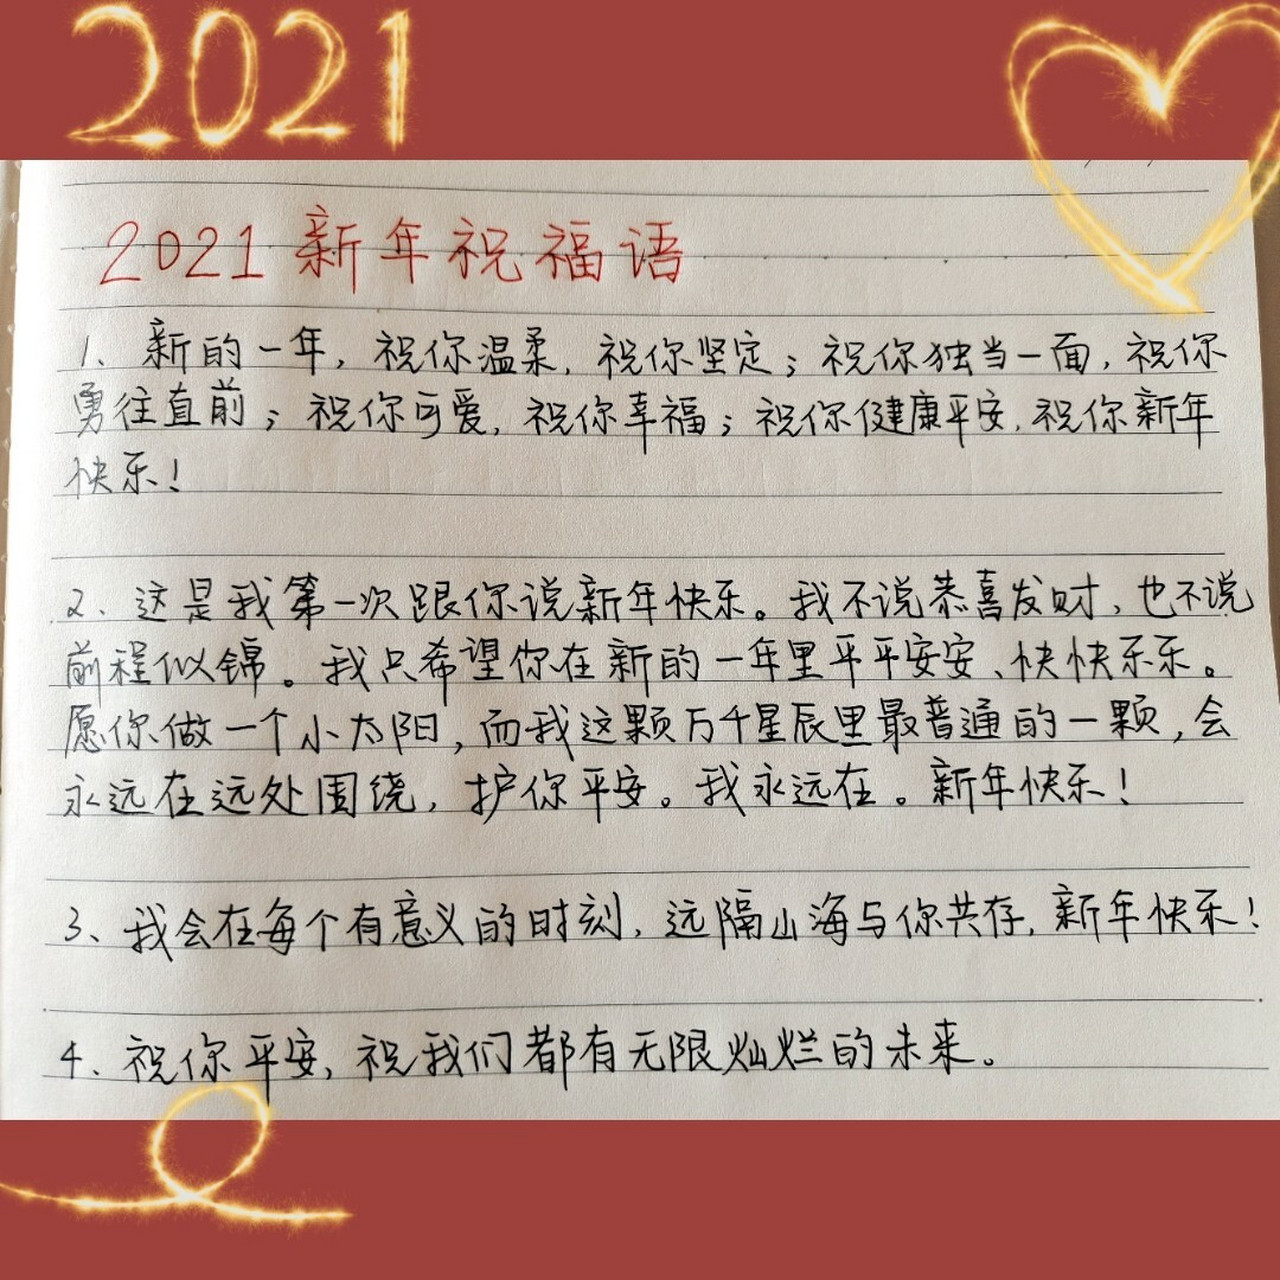 2021
2021新年祝福语
1、新的一年，祝你温柔，祝你坚定；祝你独当一面，祝你
勇往直前；祝你可爱，祝你幸福；祝你健康平安，祝你新年
快乐！
2、这是我第一次跟你说新年快乐。我不说恭喜发财，也不说
前程似锦。我只希望你在新的一年里平平安安、快快乐乐。
愿你做一个小太阳，而我这颗万千星辰里最普通的一颗，会
永远在远处围绕，护你平安。我永远在。新年快乐！
3、我会在每个有意义的时刻，远隔山海与你共存，新年快乐！
4、祝你平安，祝我们都有无限灿烂的未来。